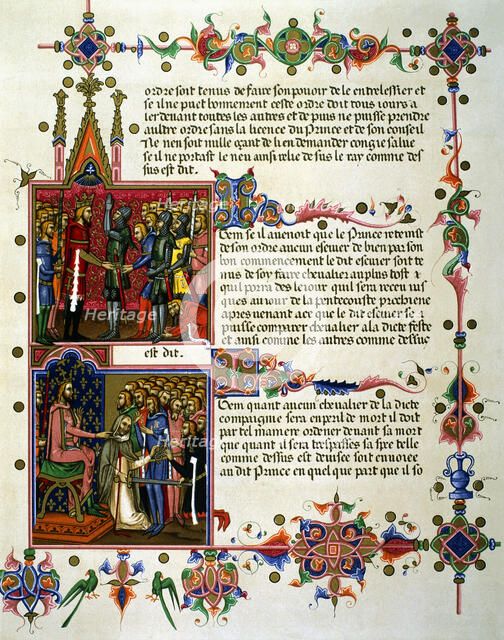 ordre sont tenus de faire son pouoir de le entrelessier et
se il ne puet bonnement ceste ordre doit tous iours a
ler deuant toutes les autres et de puis ne puisse prendre
aultre ordre sans la licence du Prince et de son conseil
Ne nen soit mille qant de lien demander congie salue
se il ne portast le neu ainsi q̃lle de sus le ray comme des
sus est dit.
Item se il auenoit que le Prince retenist
de son ordre aucun escuier de bien par son
bon commencement le dit escuier soit te
nus de soy faire cheualier au plus tost
qui porra des le iour quil sera receu ius
ques au iour de la pentecouste prochiene
apres venant ace que le dit escuier se
puisse comparer cheualier a la dicte feste
et ainsi comme les autres comme dessus
est dit.
Item quant aucun cheualier de la dicte
compaignie sera en peril de mort il doit
par tel maniere ordener deuant sa mort
que quant il sera trespasses sa
comme dessus est deuisee soit enuoiee
au dit Prince en quel que part que il so
Heritage
Heritage
Heritage
Heritage